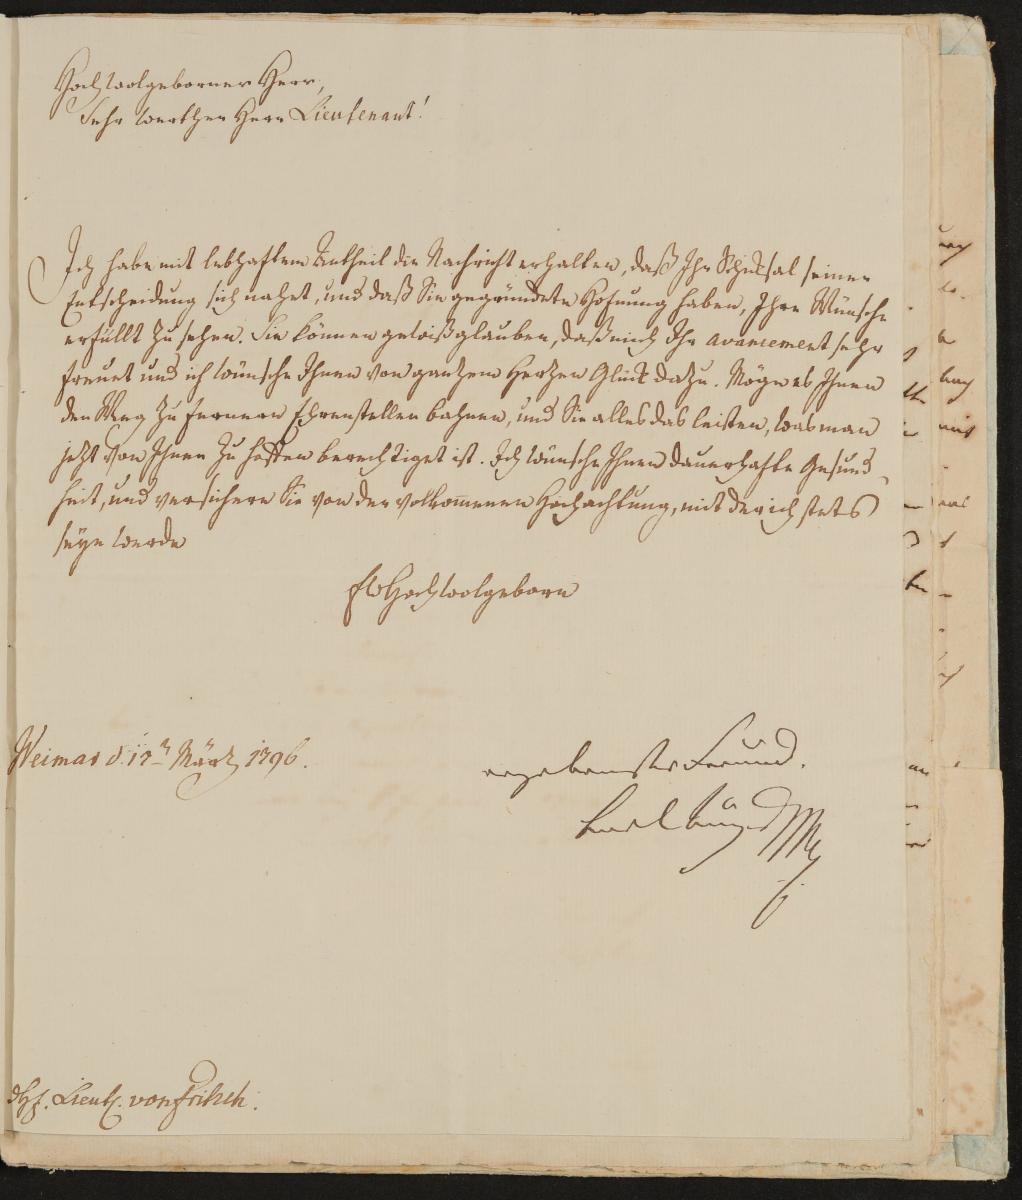 Hochwolgeborner Herr,
Sehr werther Herr Lieutenant!
Ich habe mit lebhaftem Antheil die Nachricht erhalten, daß Ihr Schicksal seiner
Entscheidung sich nahet, und daß Sie gegründete Hofnung haben, Ihre Wünsche
erfüllt zu sehen. Sie können gewiß glauben, daß mich Ihr avancement sehr
freuet und ich wünsche Ihnen von gantzem Hertzen Glück dazu. Möge es Ihnen
den Weg zu fernern Ehrenstellen bahnen, und Sie alles das leisten, was man
jetzt von Ihnen zu hoffen berechtiget ist. Ich wünsche Ihnen dauerhafte Gesund-
heit, und versichere Sie von der volkommenen Hochachtung, mit der ich stets
seyn werde
Ew Hochwolgeborn
Weimar d. 17n März 1796.
ergebenster Freund.
Carl August
Lieut. von Fritsch.